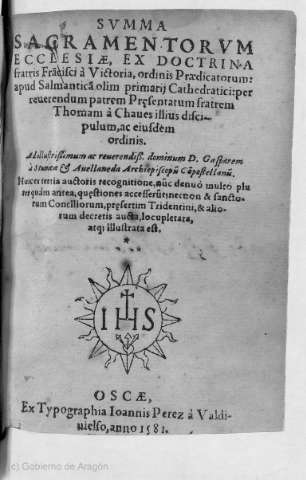 SVMMA
SACRAMENTORVM
ECCLESIÆ, EX DOCTRINA
fratris Frãcisci à Victoria, ordinis Prædicatorum:
apud Salmanticã olim primarij Cathedratici: per
reuerendum patrem Pręsentatum fratrem
Thomam à Chaues illius disci-
pulum, ac eiusdem
ordinis.
Ad illustrissimum ac reuerendiss. dominum D. Gasparem
à & Auellaneda Archiepiscopũ Cõpostellanũ.
Hæc tertia auctoris recognitione, nũc denuò multo plu
quàm antea, quęstiones accesserũt: necnon & sancto-
rum Conciliorum, pręsertim Tridentini, & alio-
rum decretis aucta, locupletata,
atq; illustrata est.
IHS
OSCÆ,
Ex Typographia Ioannis Perez à Valdi-
uielso, anno 1581.
(c) Gobierno de Aragón